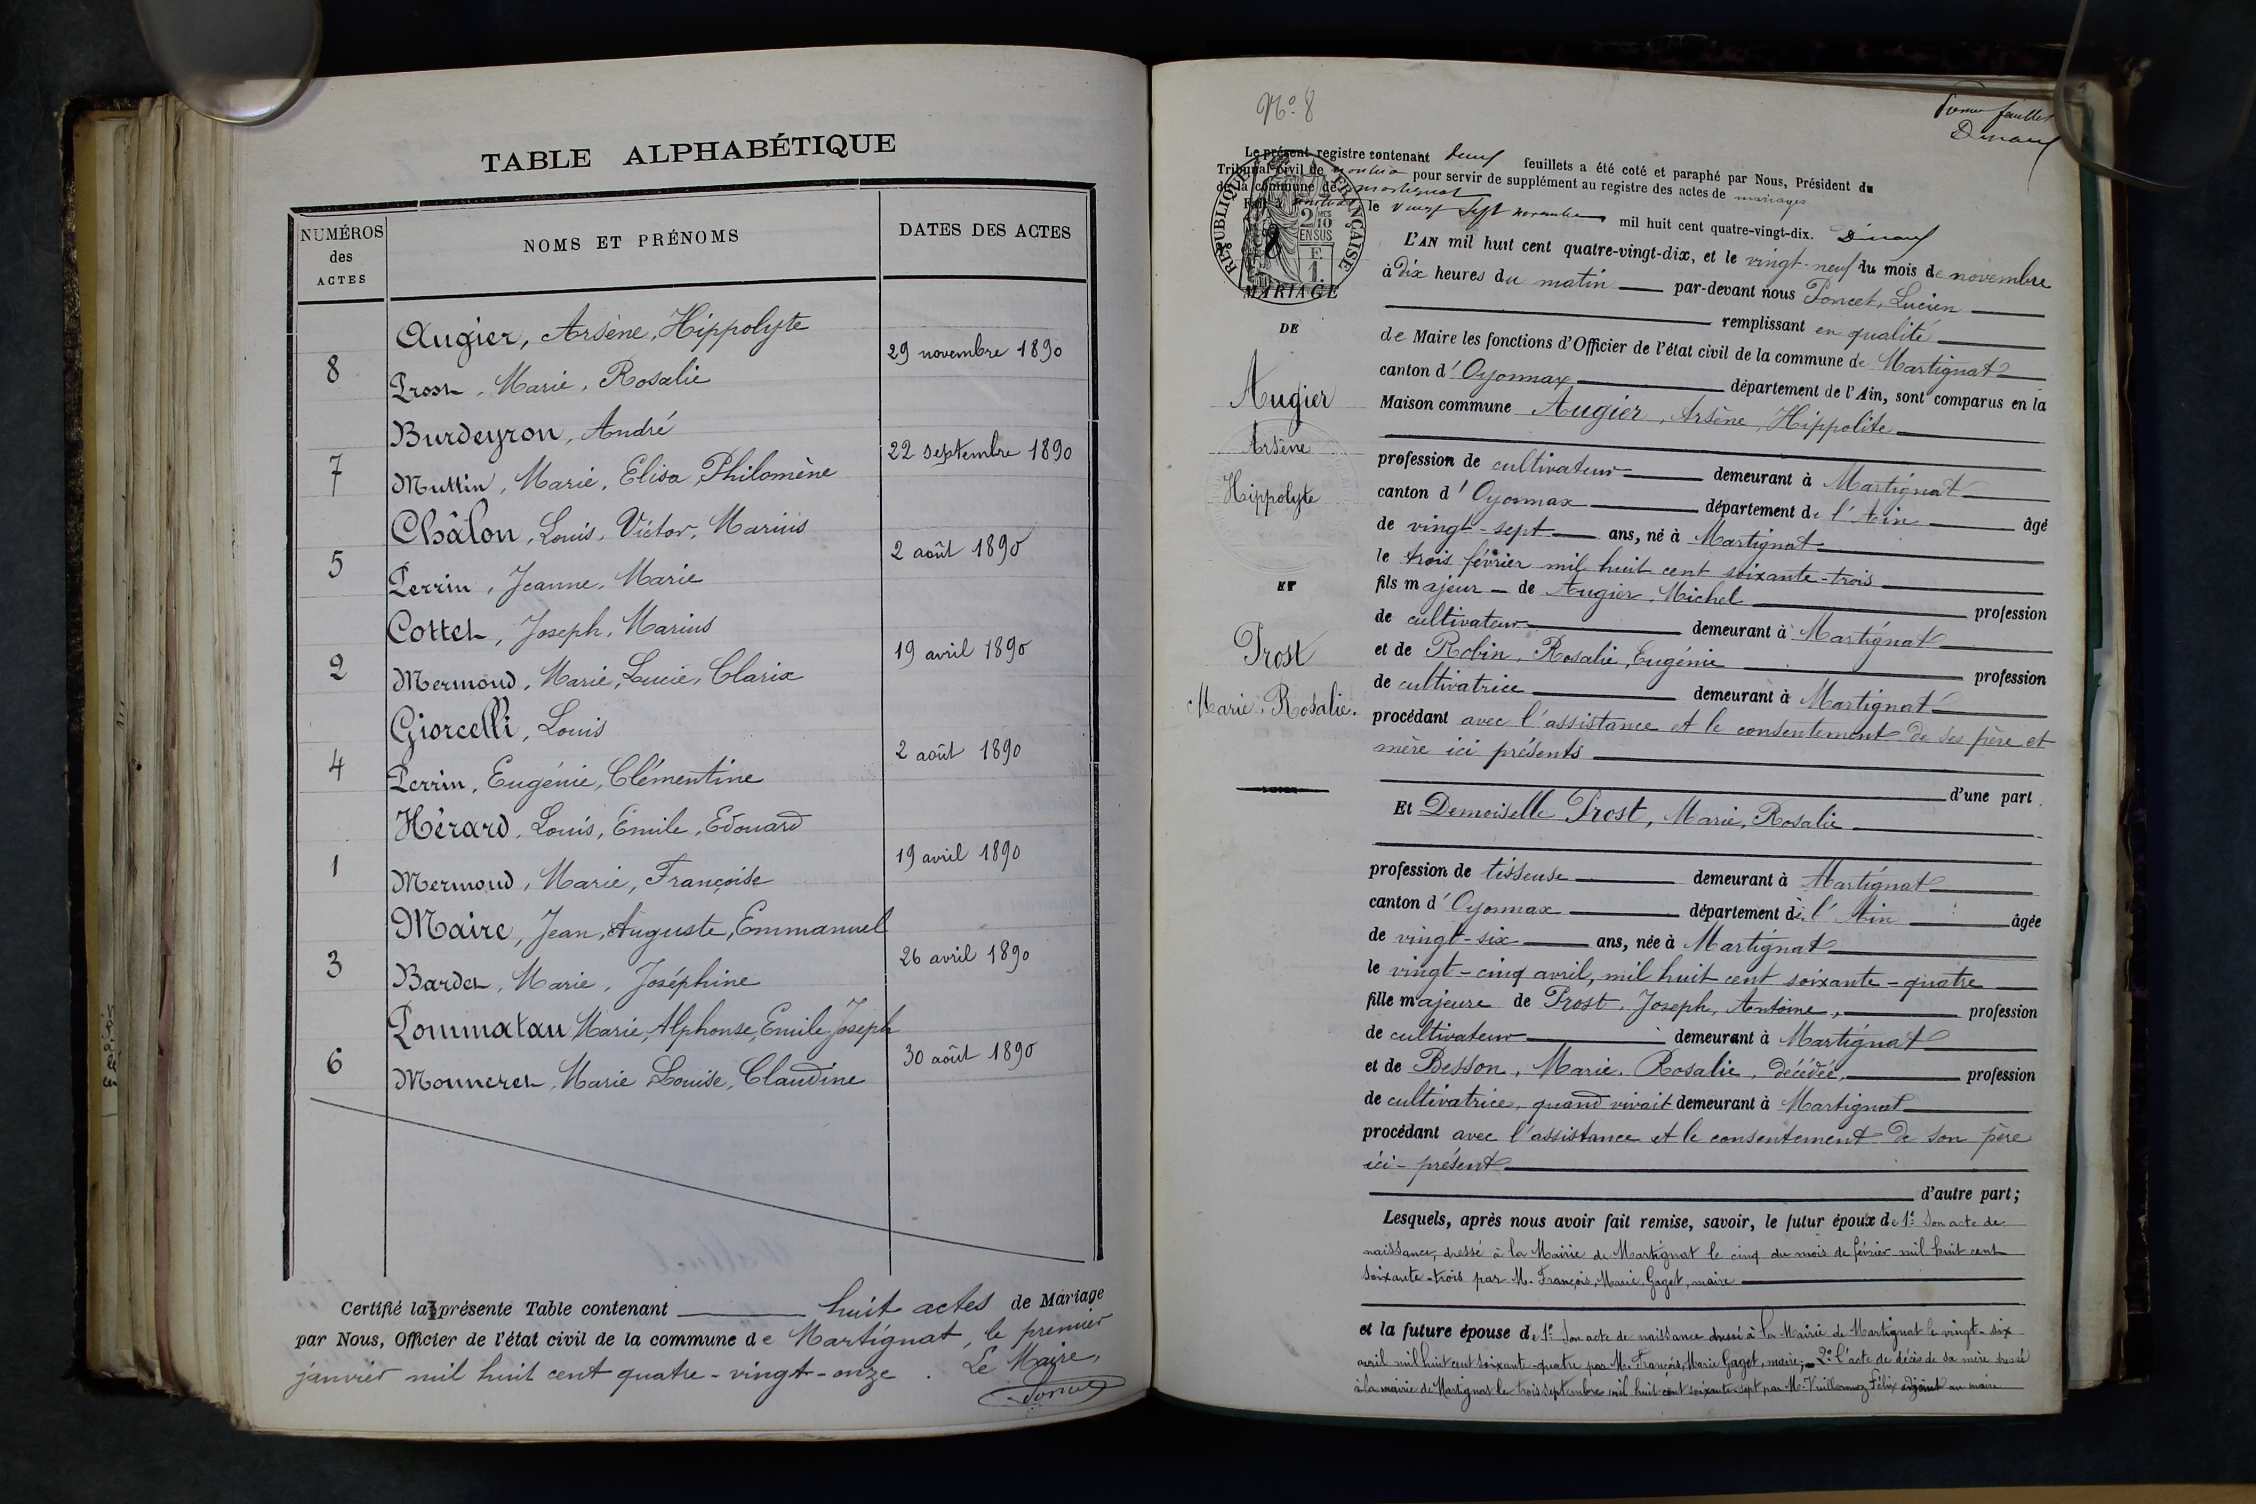 TABLE ALPHABÉTIQUE
NUMÉROS des ACTES
NOMS ET PRÉNOMS
DATES DES ACTES
Augier, Arsène, Hippolyte
8
29 novembre 1890
Prost, Marie, Rosalie
Burdeyron, André
7
22 septembre 1890
Muttin, Marie, Elisa, Philomène
Châlon, Louis, Victor, Marius
5
2 août 1890
Perrin, Jeanne, Marie
Cottet, Joseph, Marius
2
19 avril 1890
Mermoud, Marie, Lucie, Clarix
Giorcelli, Louis
4
2 août 1890
Perrin, Eugénie, Clémentine
Hérard, Louis, Emile, Edouard
1
19 avril 1890
Mermoud, Marie, Françoise
Maire, Jean, Auguste, Emmanuel
3
26 avril 1890
Bardet, Marie, Joséphine
Pommatau Marie, Alphonse, Emile, Joseph
6
30 août 1890
Monneret, Marie Louise, Claudine
Certifié la présente Table contenant huit actes de Mariage
par Nous, Officier de l'état civil de la commune de Martignat, le premier
janvier mil huit cent quatre-vingt-onze. Le Maire,
Poncet
N° 8
feuillet
Le présent registre contenant feuillets a été coté et paraphé par Nous, Président du
Tribunal civil de Nantua pour servir de supplément au registre des actes de mariages
de la commune de Martignat
Fait à Nantua, le vingt sept novembre mil huit cent quatre-vingt-dix.
RÉPUBLIQUE FRANÇAISE
2 MES
10
EN SUS
F.
1.
8
MARIAGE
DE
Augier
Arsène
Hippolyte
ET
Prost
Marie, Rosalie.
L'AN mil huit cent quatre-vingt-dix, et le vingt-neuf du mois de novembre
à dix heures du matin par-devant nous Poncet, Lucien
remplissant en qualité
de Maire les fonctions d'Officier de l'état civil de la commune de Martignat
canton d'Oyonnax département de l'Ain, sont comparus en la
Maison commune Augier, Arsène, Hippolite
profession de cultivateur demeurant à Martignat
canton d'Oyonnax département de l'Ain âgé
de vingt-sept ans, né à Martignat
le trois février mil huit cent soixante-trois
fils majeur de Augier, Michel profession
de cultivateur demeurant à Martignat
et de Robin, Rosalie, Eugénie profession
de cultivatrice demeurant à Martignat
procédant avec l'assistance et le consentement de ses père et
mère ici présents
d'une part.
Et Demoiselle Prost, Marie, Rosalie
profession de tisseuse demeurant à Martignat
canton d'Oyonnax département de l'Ain âgée
de vingt-six ans, née à Martignat
le vingt-cinq avril, mil huit cent soixante-quatre
fille majeure de Prost, Joseph, Antoine, profession
de cultivateur demeurant à Martignat
et de Besson, Marie, Rosalie, décédée, profession
de cultivatrice, quand vivait demeurant à Martignat
procédant avec l'assistance et le consentement de son père
ici-présent
d'autre part;
Lesquels, après nous avoir fait remise, savoir, le futur époux de 1° Son acte de
naissance, dressé à la Mairie de Martignat le cinq du mois de février mil huit cent
soixante-trois par M. François, Marie Gaget, maire
et la future épouse de 1° Son acte de naissance dressé à la Mairie de Martignat le vingt-six
avril mil huit cent soixante-quatre par M. François, Marie Gaget, maire; 2° l'acte de décès de sa mère dressé
à la mairie de Martignat le trois septembre mil huit cent soixante-sept, par M. Vuillermoz Félix adjoint au maire